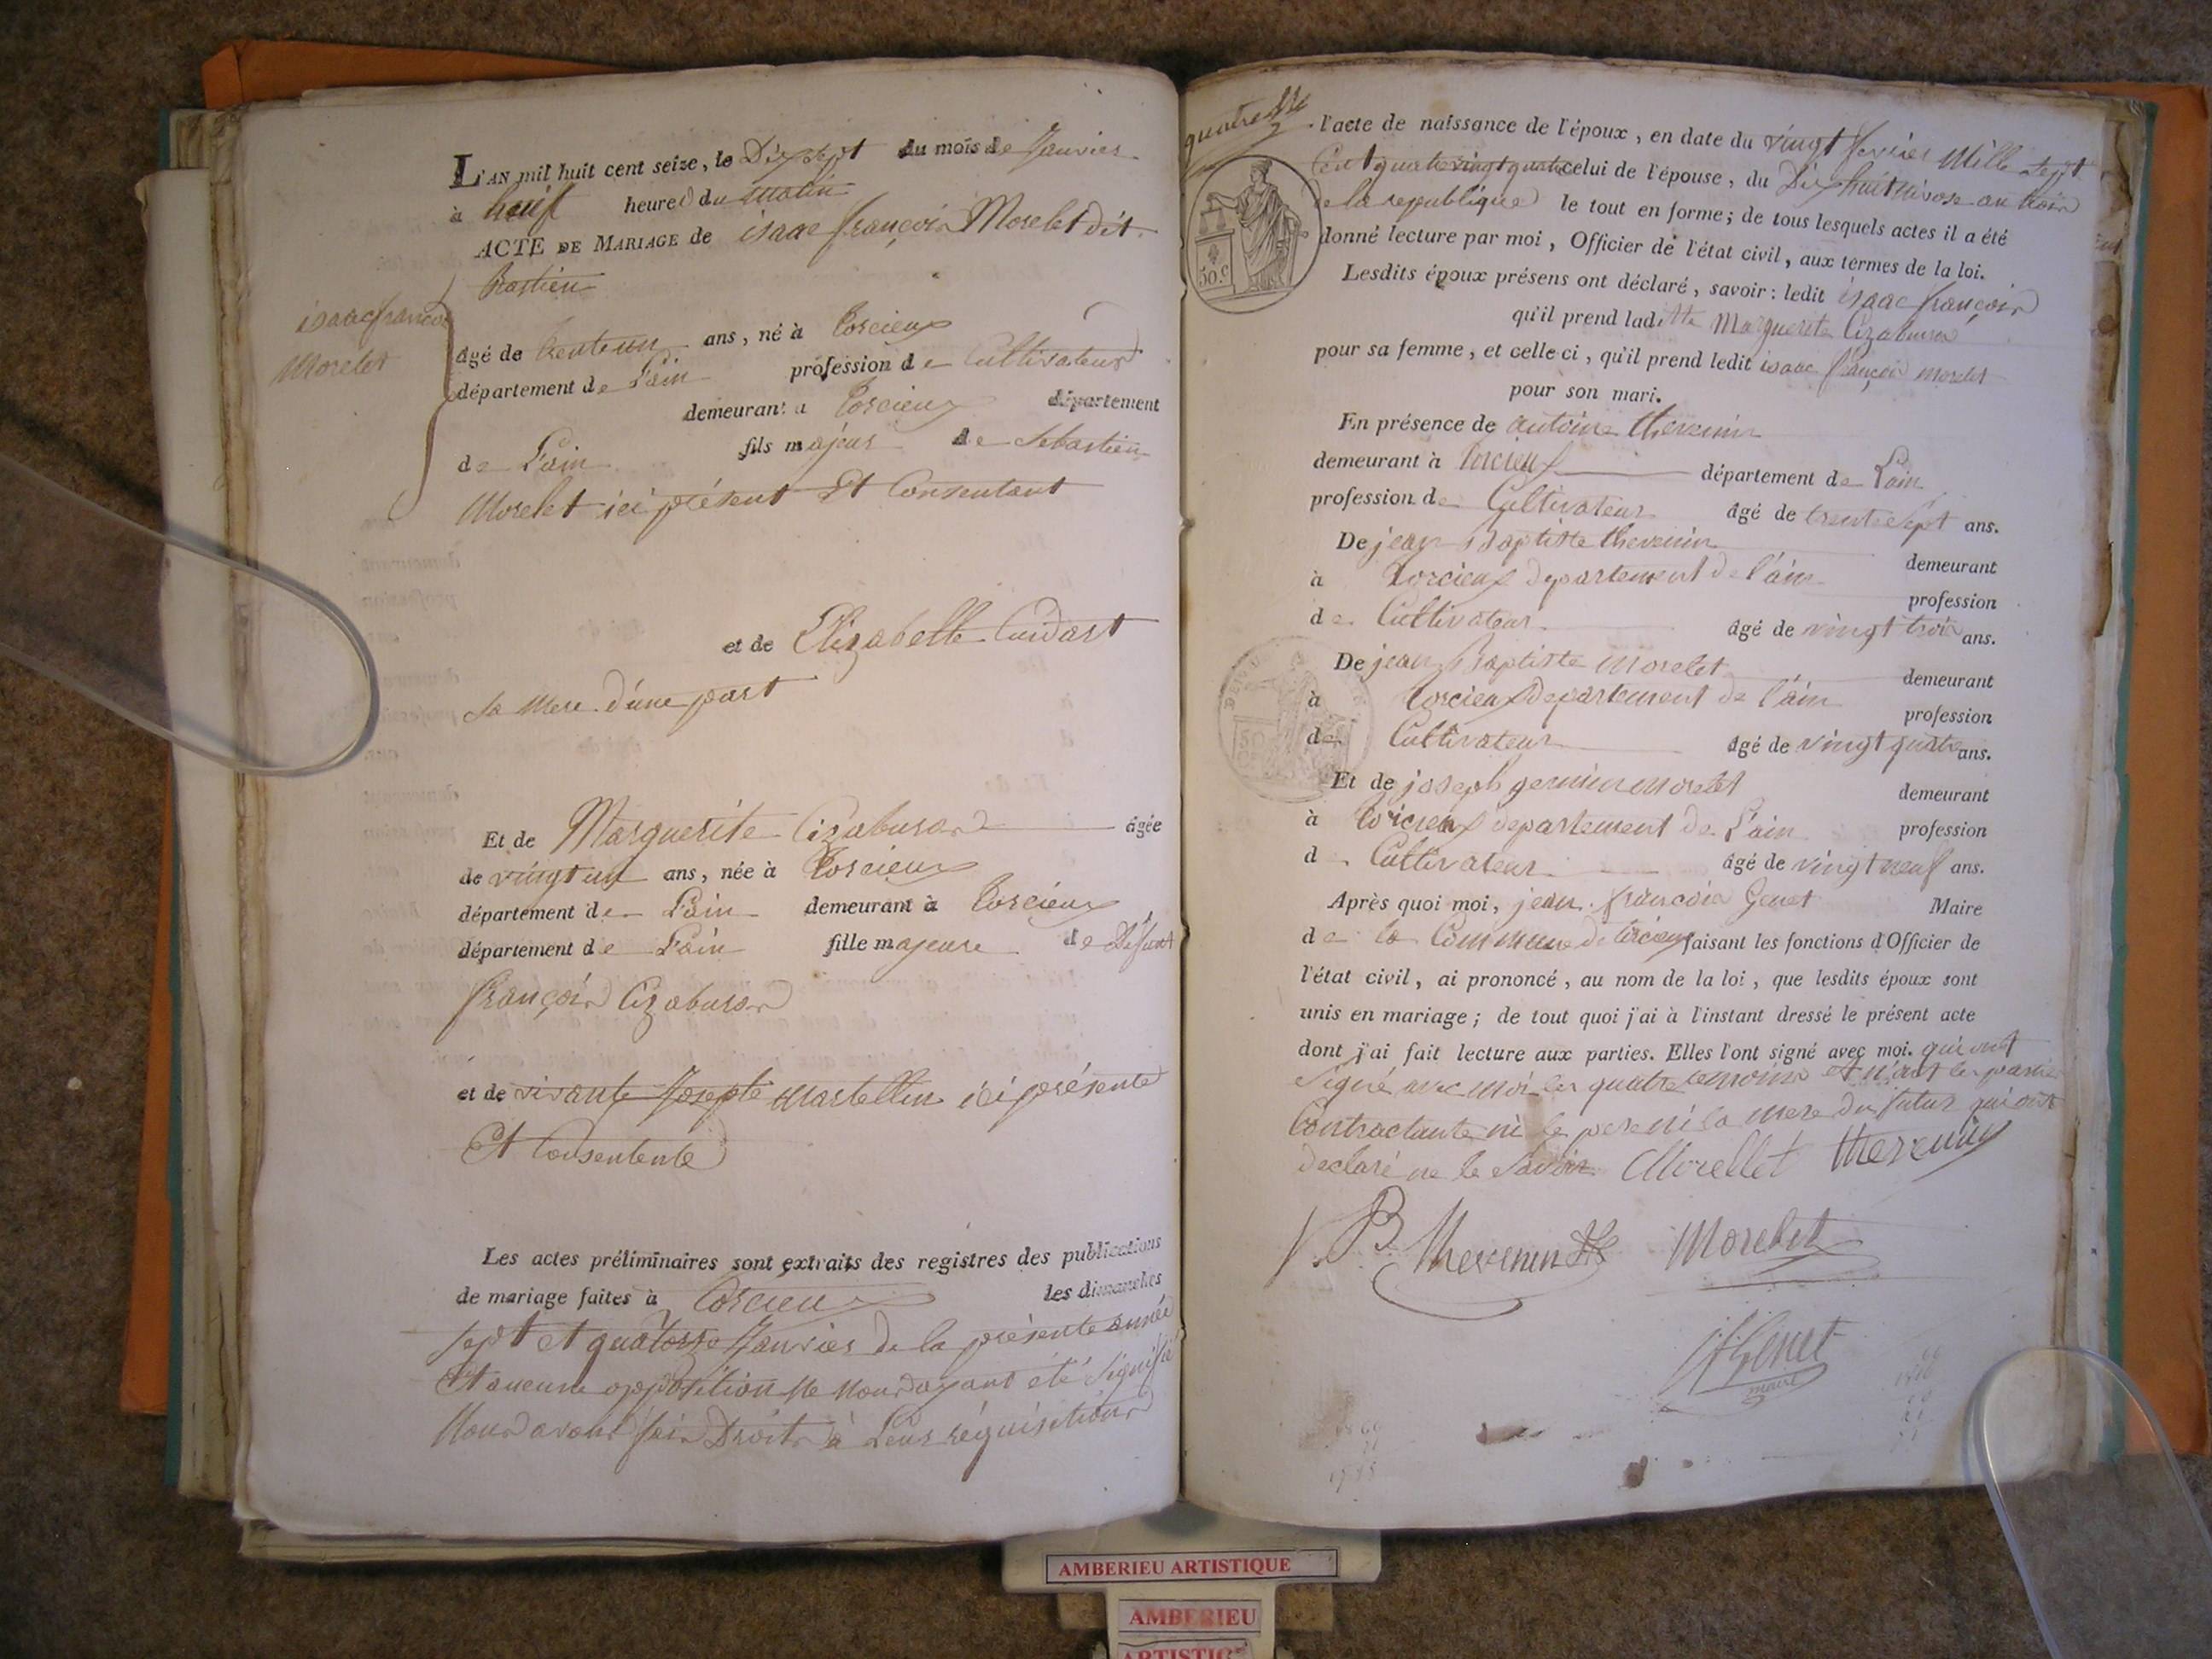 L'AN mil huit cent seize, le Dix sept du mois de Janvier
à neuf heures du matin
ACTE DE MARIAGE de isaac françois Morelet dit
Bastien
isaac françois
Morelet
âgé de trente un ans, né à Torcieux
département de L'ain profession de Cultivateur
demeurant à Torcieux département
de L'ain fils majeur de Sebastien
Morelet ici présent Et Consentant
et de Elizabette Cuidart
sa Mere d'une part
Et de Marguerite Cizaburon âgée
de vingt un ans, née à Torcieux
département de L'ain demeurant à Torcieux
département de L'ain fille majeure de Defunt
françois Cizaburon
et de vivante Josepte Martellin ici présente
Et Consentente
Les actes préliminaires sont extraits des registres des publications
de mariage faites à Torcieux les dimanches
sept et quatorze Janvier de la présente année
Et aucune opposition Ne Nous ayant été signifié
Nous avons fair Droit à Leur réquisitions
l'acte de naissance de l'époux, en date du vingt fevrier Mille sept
Cent quatre vingt quatre celui de l'épouse, du Dix huit Nivose an trois
de la republique le tout en forme; de tous lesquels actes il a été
donné lecture par moi, Officier de l'état civil, aux termes de la loi.
50.c
Lesdits époux présens ont déclaré, savoir: ledit isaac françois
qu'il prend laditte Marguerite Cizaburon
pour sa femme, et celle-ci, qu'il prend ledit isaac françois morelet
pour son mari.
En présence de antoine thevenin
demeurant à torcieux département de L'ain
profession de Cultivateur âgé de trente sept ans.
De jean Baptiste thevenin demeurant
à torcieux departement de l'ain profession
de Cultivateur âgé de vingt trois ans.
De jean Baptiste Morelet demeurant
à torcieux departement de l'ain profession
de Cultivateur âgé de vingt quatre ans.
Et de joseph germin morelet demeurant
à torcieux departement de L'ain profession
de Cultivateur âgé de vingt neuf ans.
Après quoi moi, jean françois Genet Maire
de la Commune de torcieux faisant les fonctions d'Officier de
l'état civil, ai prononcé, au nom de la loi, que lesdits époux sont
unis en mariage; de tout quoi j'ai à l'instant dressé le présent acte
dont j'ai fait lecture aux parties. Elles l'ont signé avec moi. qui ont
Signé avec moi les quatre temoins et n'ont les parties
Contractante ni le pere ni la mere du futur qui ont
declaré ne le savoir Morellet thevenin
B thevenin Morelet
jf Genet
maire
AMBERIEU ARTISTIQUE
AMBERIEU
ARTISTIQUE